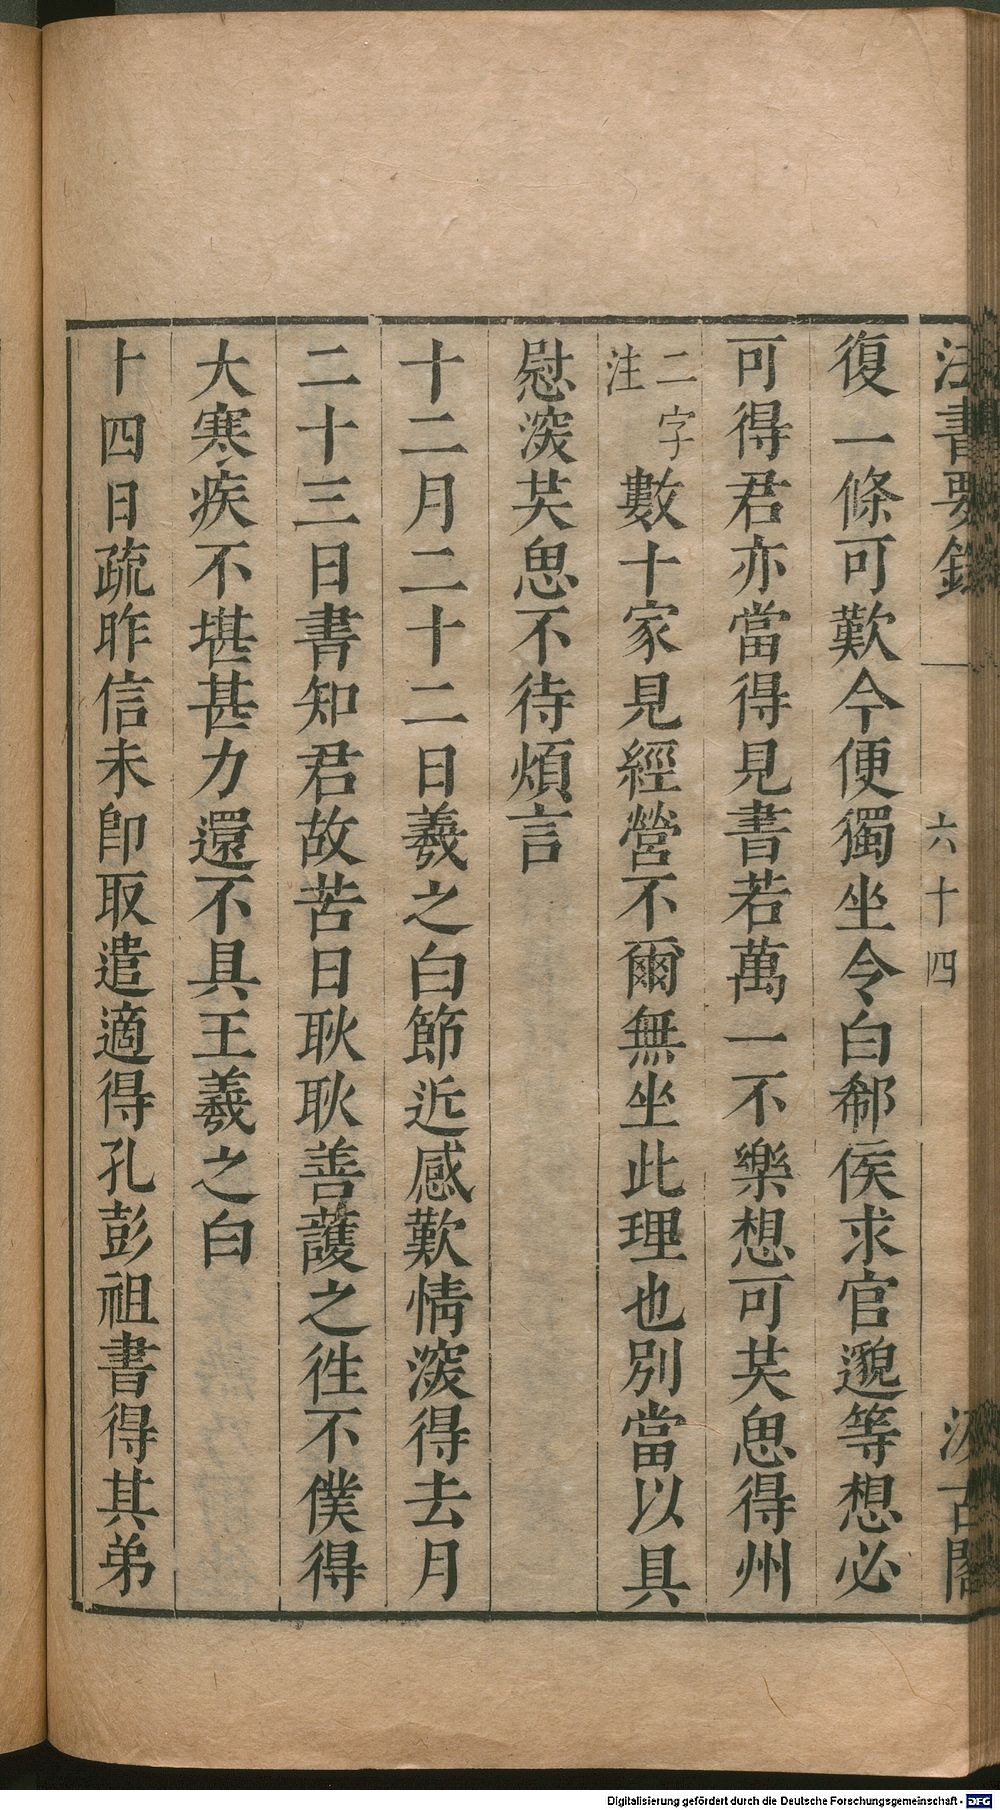 法書要錄
六十四
汲古閣
復一條可歎今便獨坐令白郗矦求官邈等想必
可得君亦當得見書若萬一不樂想可共思得州
二字注數十家見經營不爾無坐此理也別當以具
慰深共思不待煩言
十二月二十二日羲之白節近感歎情深得去月
二十三日書知君故苦日耿耿善護之往不僕得
大寒疾不堪甚力還不具王羲之白
十四日疏昨信未即取遣適得孔彭祖書得其弟
Digitalisierung gefördert durch die Deutsche Forschungsgemeinschaft - DFG